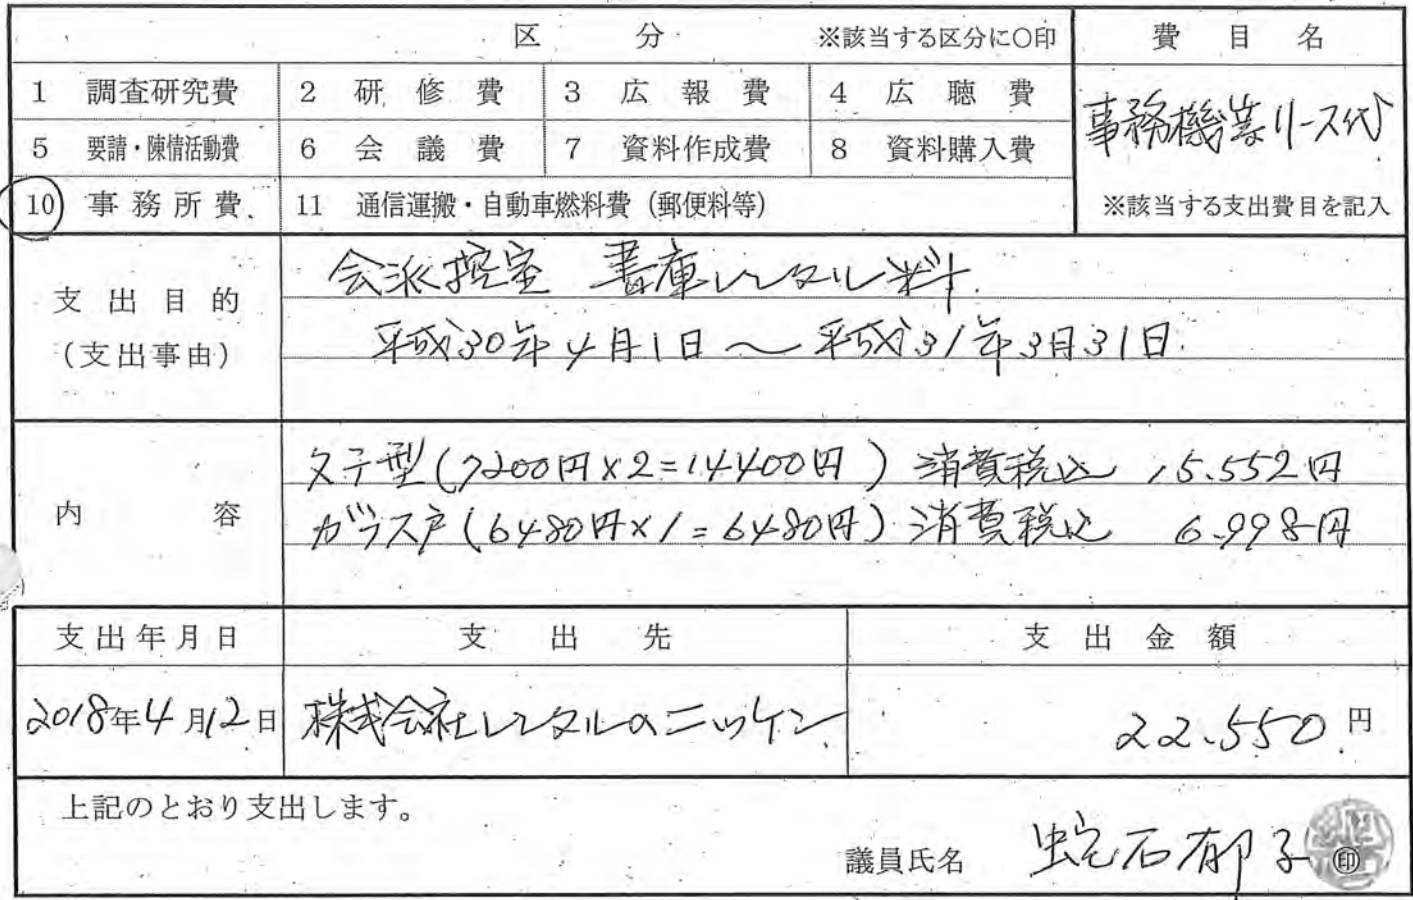 区 分 ※該当する区分に○印 費 目 名
1 調査研究費 2 研 修 費 3 広 報 費 4 広 聴 費
事務機等リース代
5 要請・陳情活動費 6 会 議 費 7 資料作成費 8 資料購入費
10 事務所費 11 通信運搬・自動車燃料費(郵便料等) ※該当する支出費目を記入
会派控室 書庫レンタル料
支出目的
平成30年4月1日~平成31年3月31日
(支出事由)
タテ型(7200円×2=14400円)消費税込 15.552円
内 容
ガラス戸(6480円×1=6480円)消費税込 6.998円
支出年月日 支 出 先 支 出 金 額
2018年4月12日 株式会社レンタルのニッケン 22.550円
上記のとおり支出します。
議員氏名 蛇石郁子 印